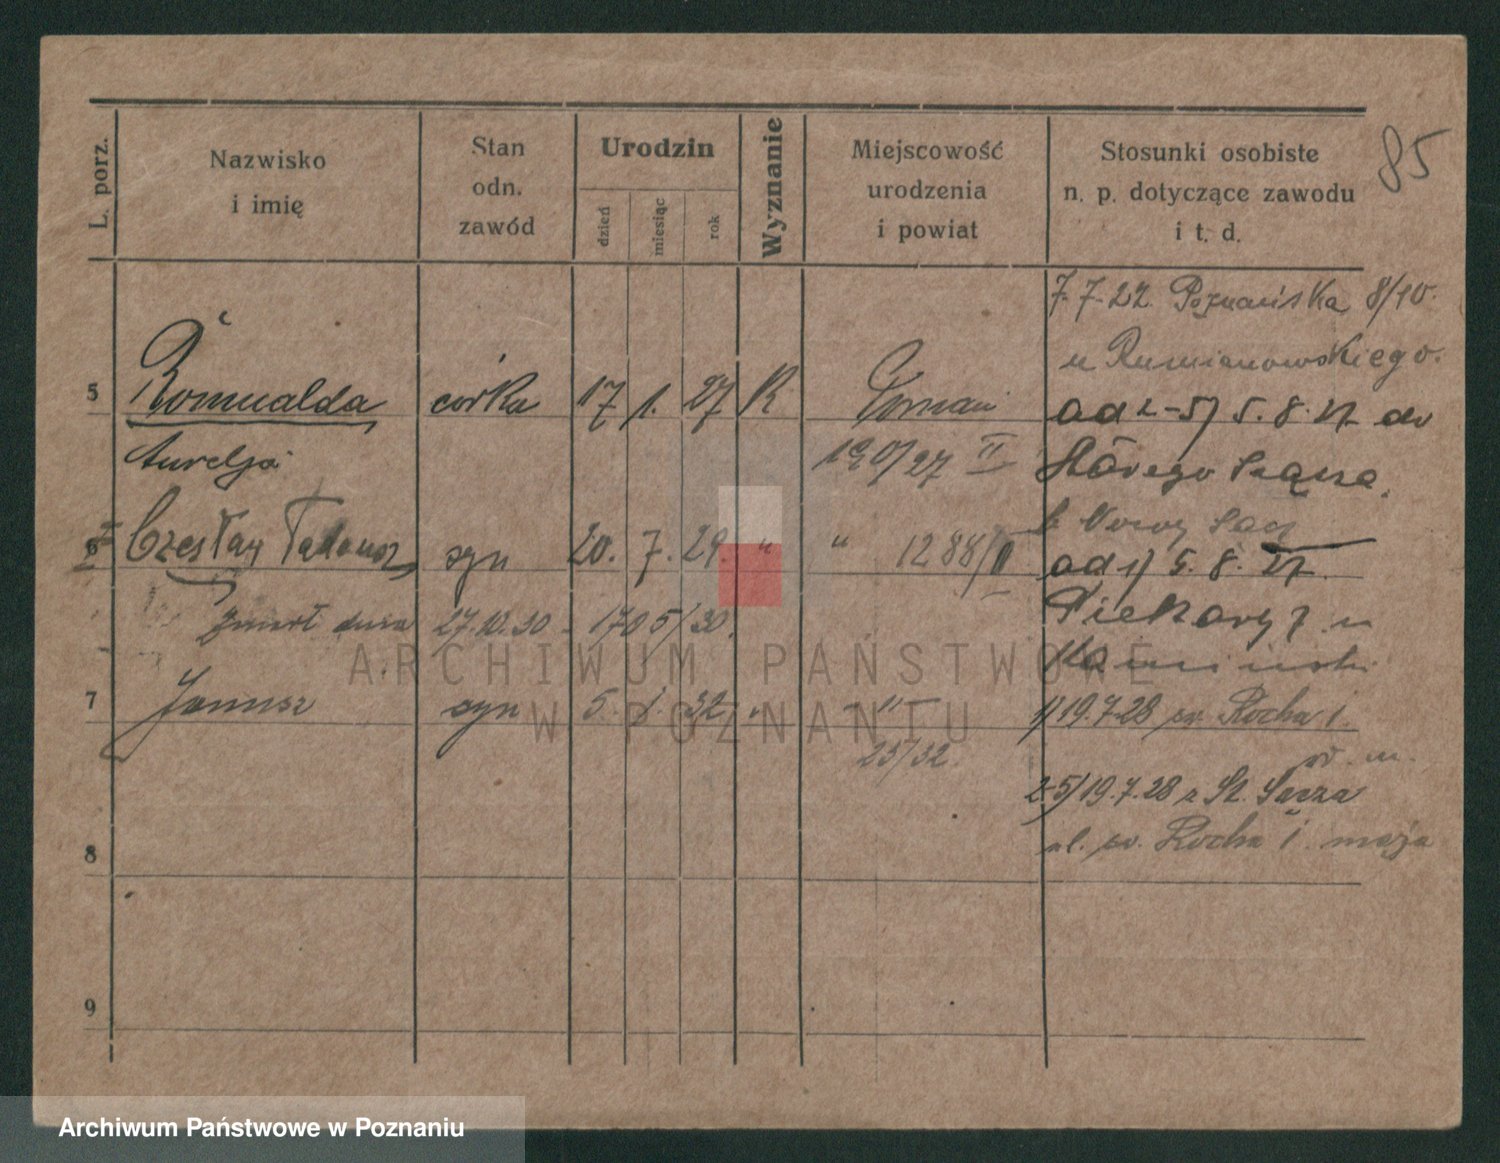 85
L. porz.
Nazwisko
i imię
Stan
odn.
zawód
Urodzin
dzień
miesiąc
rok
Wyznanie
Miejscowość
urodzenia
i powiat
Stosunki osobiste
n. p. dotyczące zawodu
i t. d.
7.7.22. Poznańska 8/10.
u Rumianowskiego.
5 Romualda córka 17 1. 27 R Poznań
Aurelja 190/27 II
od 2-5) 5.8.27 do
Starego Sącza.
Nowy Sącz
6 Czesław Tadeusz syn 20. 7. 29. " " 1288/II
od 1) 5.8.27.
Piekary 7. u
zmarł dnia 27.10.30. 1705/30.
Kamiński
7 Janusz syn 5. 1. 32. " -"-
23/32.
1) 19.7.28 św. Rocha 1.
2-5) 19.7.28 z St. Sącza
ul. św. Rocha 1.
8
9
ARCHIWUM PAŃSTWOWE
W POZNANIU
Archiwum Państwowe w Poznaniu